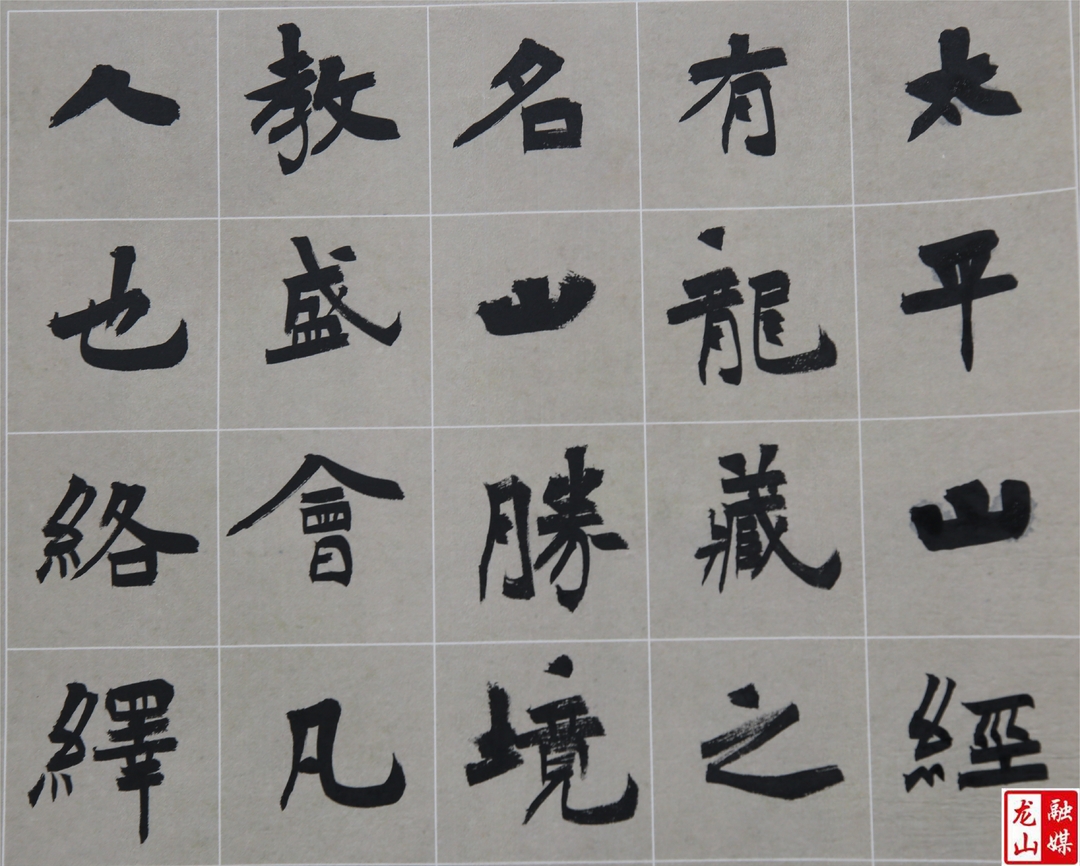 太平山經
有龍藏之
名山勝境
教盛會凡
人也絡繹
龙山
融媒